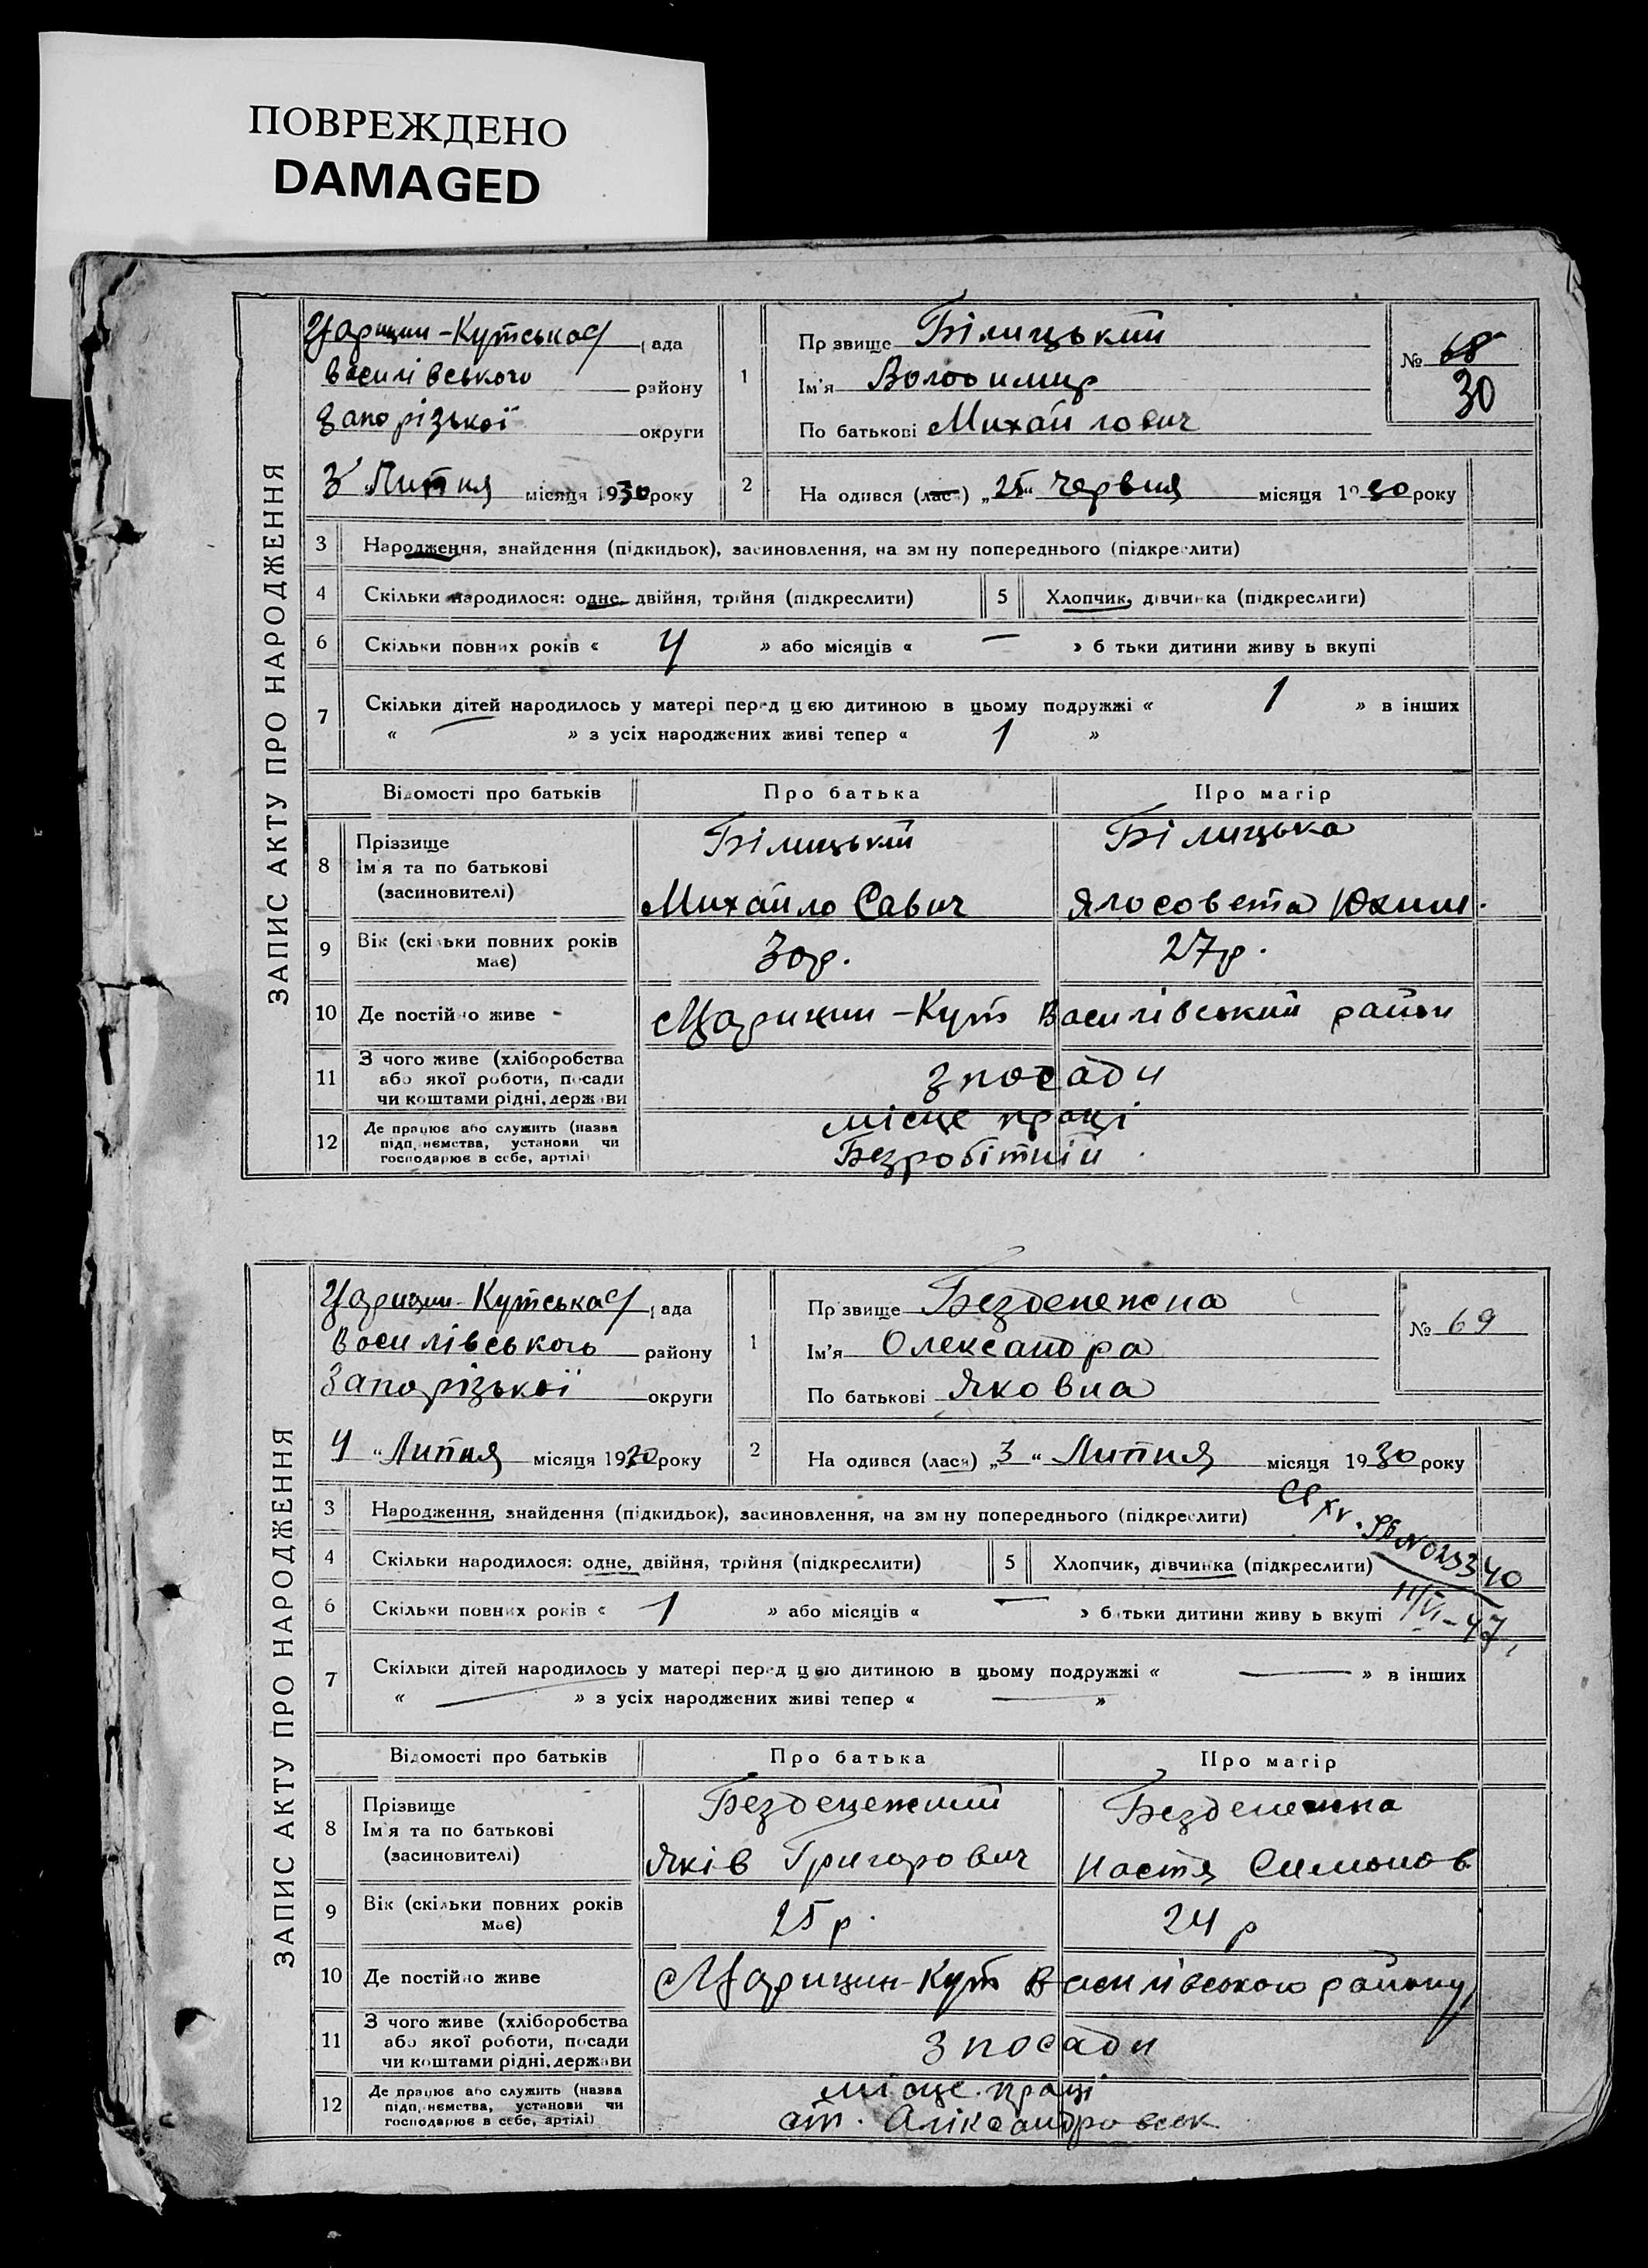 ПОВРЕЖДЕНО
DAMAGED
ЗАПИС АКТУ ПРО НАРОДЖЕННЯ
Царицин-Кутська рада
Василівського району
Запорізької округи
3 Липня місяця 1930 року
1
Пр звище Білицький
Ім'я Володимир
По батькові Михайлович
№ 68
30
2
На одився (лас ) „25“ Червня місяця 1930 року
3 Народження, знайдення (підкидьок), засиновлення, на зм ну попереднього (підкреслити)
4 Скільки народилося: одне, двійня, трійня (підкреслити)
5 Хлопчик, дівчинка (підкреслити)
6 Скільки повних років « 4 » або місяців « — » б тьки дитини живу ь вкупі
7 Скільки дітей народилось у матері перед цею дитиною в цьому подружжі « 1 » в інших
« — » з усіх народжених живі тепер « 1 »
Відомості про батьків Про батька Про матір
8 Прізвище
Ім'я та по батькові
(засиновителі)
Білицький
Михайло Савич
Білицька
Ялосовета Юхим.
9 Вік (скільки повних років
має)
30 р. 27 р.
10 Де постійно живе - Царицин-Кут Василівський район
11 З чого живе (хліборобства
або якої роботи, посади
чи коштами рідні, держави
з посади
12 Де працює або служить (назва
підп. немства, установи чи
господарює в себе, артілі)
місце праці
Безробітний
ЗАПИС АКТУ ПРО НАРОДЖЕННЯ
Царицин-Кутська рада
Василівського району
Запорізької округи
4 “ Липня місяця 1930 року
1
Пр звище Безденежна
Ім'я Олександра
По батькові Яковна
№ 69
2
На одився (лася) „3“ Липня місяця 1930 року
3 Народження, знайдення (підкидьок), засиновлення, на зм ну попереднього (підкреслити)
4 Скільки народилося: одне, двійня, трійня (підкреслити)
5 Хлопчик, дівчинка (підкреслити)
6 Скільки повних років « 1 » або місяців « — » батьки дитини живу ь вкупі
11/VI-47
7 Скільки дітей народилось у матері перед цею дитиною в цьому подружжі « — » в інших
« — » з усіх народжених живі тепер « — »
Відомості про батьків Про батька Про матір
8 Прізвище
Ім'я та по батькові
(засиновителі)
Безденежний
Яків Григорович
Безденежна
Настя Симонов
9 Вік (скільки повних років
має)
25 р. 24 р
10 Де постійно живе Царицин-Кут Василівського району
11 З чого живе (хліборобства
або якої роботи, посади
чи коштами рідні, держави
з посади
12 Де працює або служить (назва
підп. немства, установи чи
господарює в себе, артілі)
місце праці
ст. Аліксандровськ